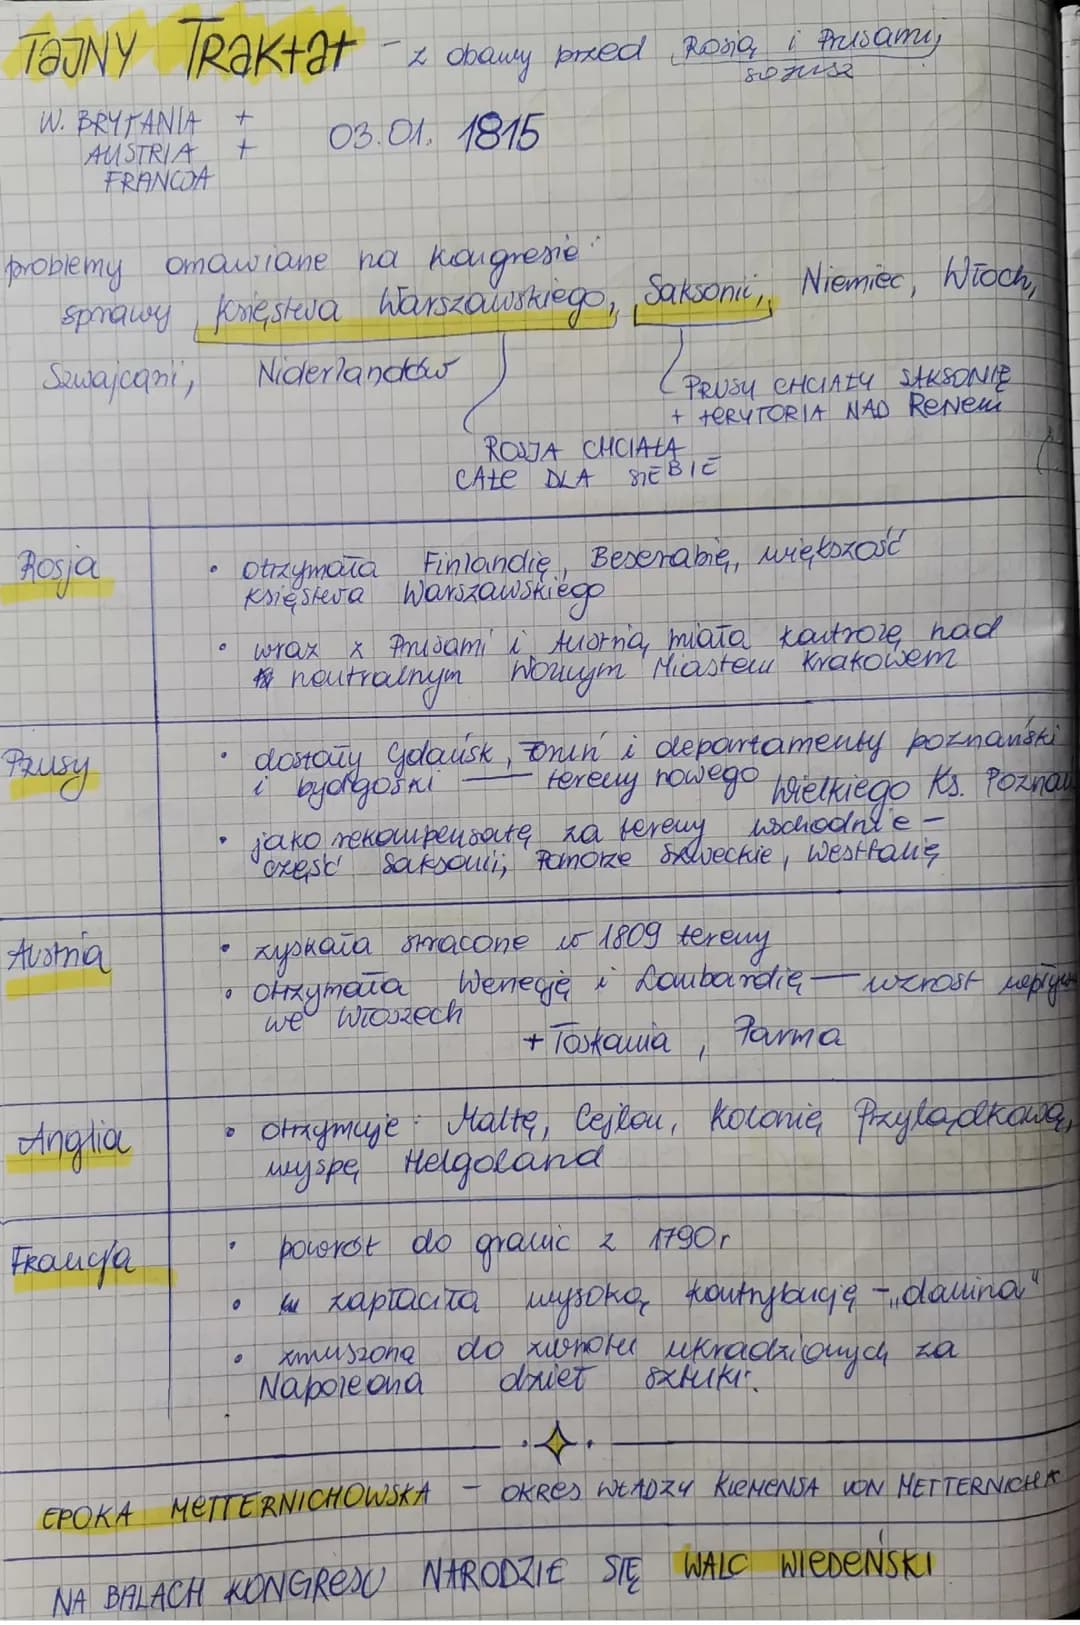 TAJNY TRAKTAT - z obawy przed Rosją i Prusami,
sojusz
W. BRYTANIA +
AUSTRIA +
FRANCJA
03.01. 1815
problemy omawiane na kongresie:
sprawy Księstwa Warszawskiego, Saksonii, Niemiec, Włoch,
Szwajcarii, Niderlandów
PRUSY CHCIAŁY SAKSONIĘ
+ TERYTORIA NAD RENEM
ROSJA CHCIAŁA
CAŁE DLA SIEBIE
Rosja
• otrzymała Finlandię, Besarabię, większość
Księstwa Warszawskiego
• wraz z Prusami i Austrią miała kontrolę nad
neutralnym Wolnym Miastem Krakowem
Prusy
• dostały Gdańsk, Toruń i departamenty poznański
i bydgoski — tereny nowego Wielkiego Ks. Poznań
• jako rekompensatę za tereny wschodnie -
część Saksonii, Pomorze Szwedzkie, Westfalię
Austria
• zyskała stracone w 1809 tereny
• otrzymała Wenecję i Lombardię — wzrost wpływ
we Włoszech
+ Toskania, Parma
Anglia
• otrzymuje: Maltę, Cejlon, Kolonię Przylądkową,
wyspę Helgoland
Francja
• powrót do granic z 1790r
• zapłaciła wysoką kontrybucję - „danina"
• zmuszona do zwrotu ukradzionych za
Napoleona dzieł sztuki.
EPOKA METTERNICHOWSKA - OKRES WŁADZY KLEMENSA VON METTERNICHA
NA BALACH KONGRESU NARODZIŁ SIĘ WALC WIEDEŃSKI